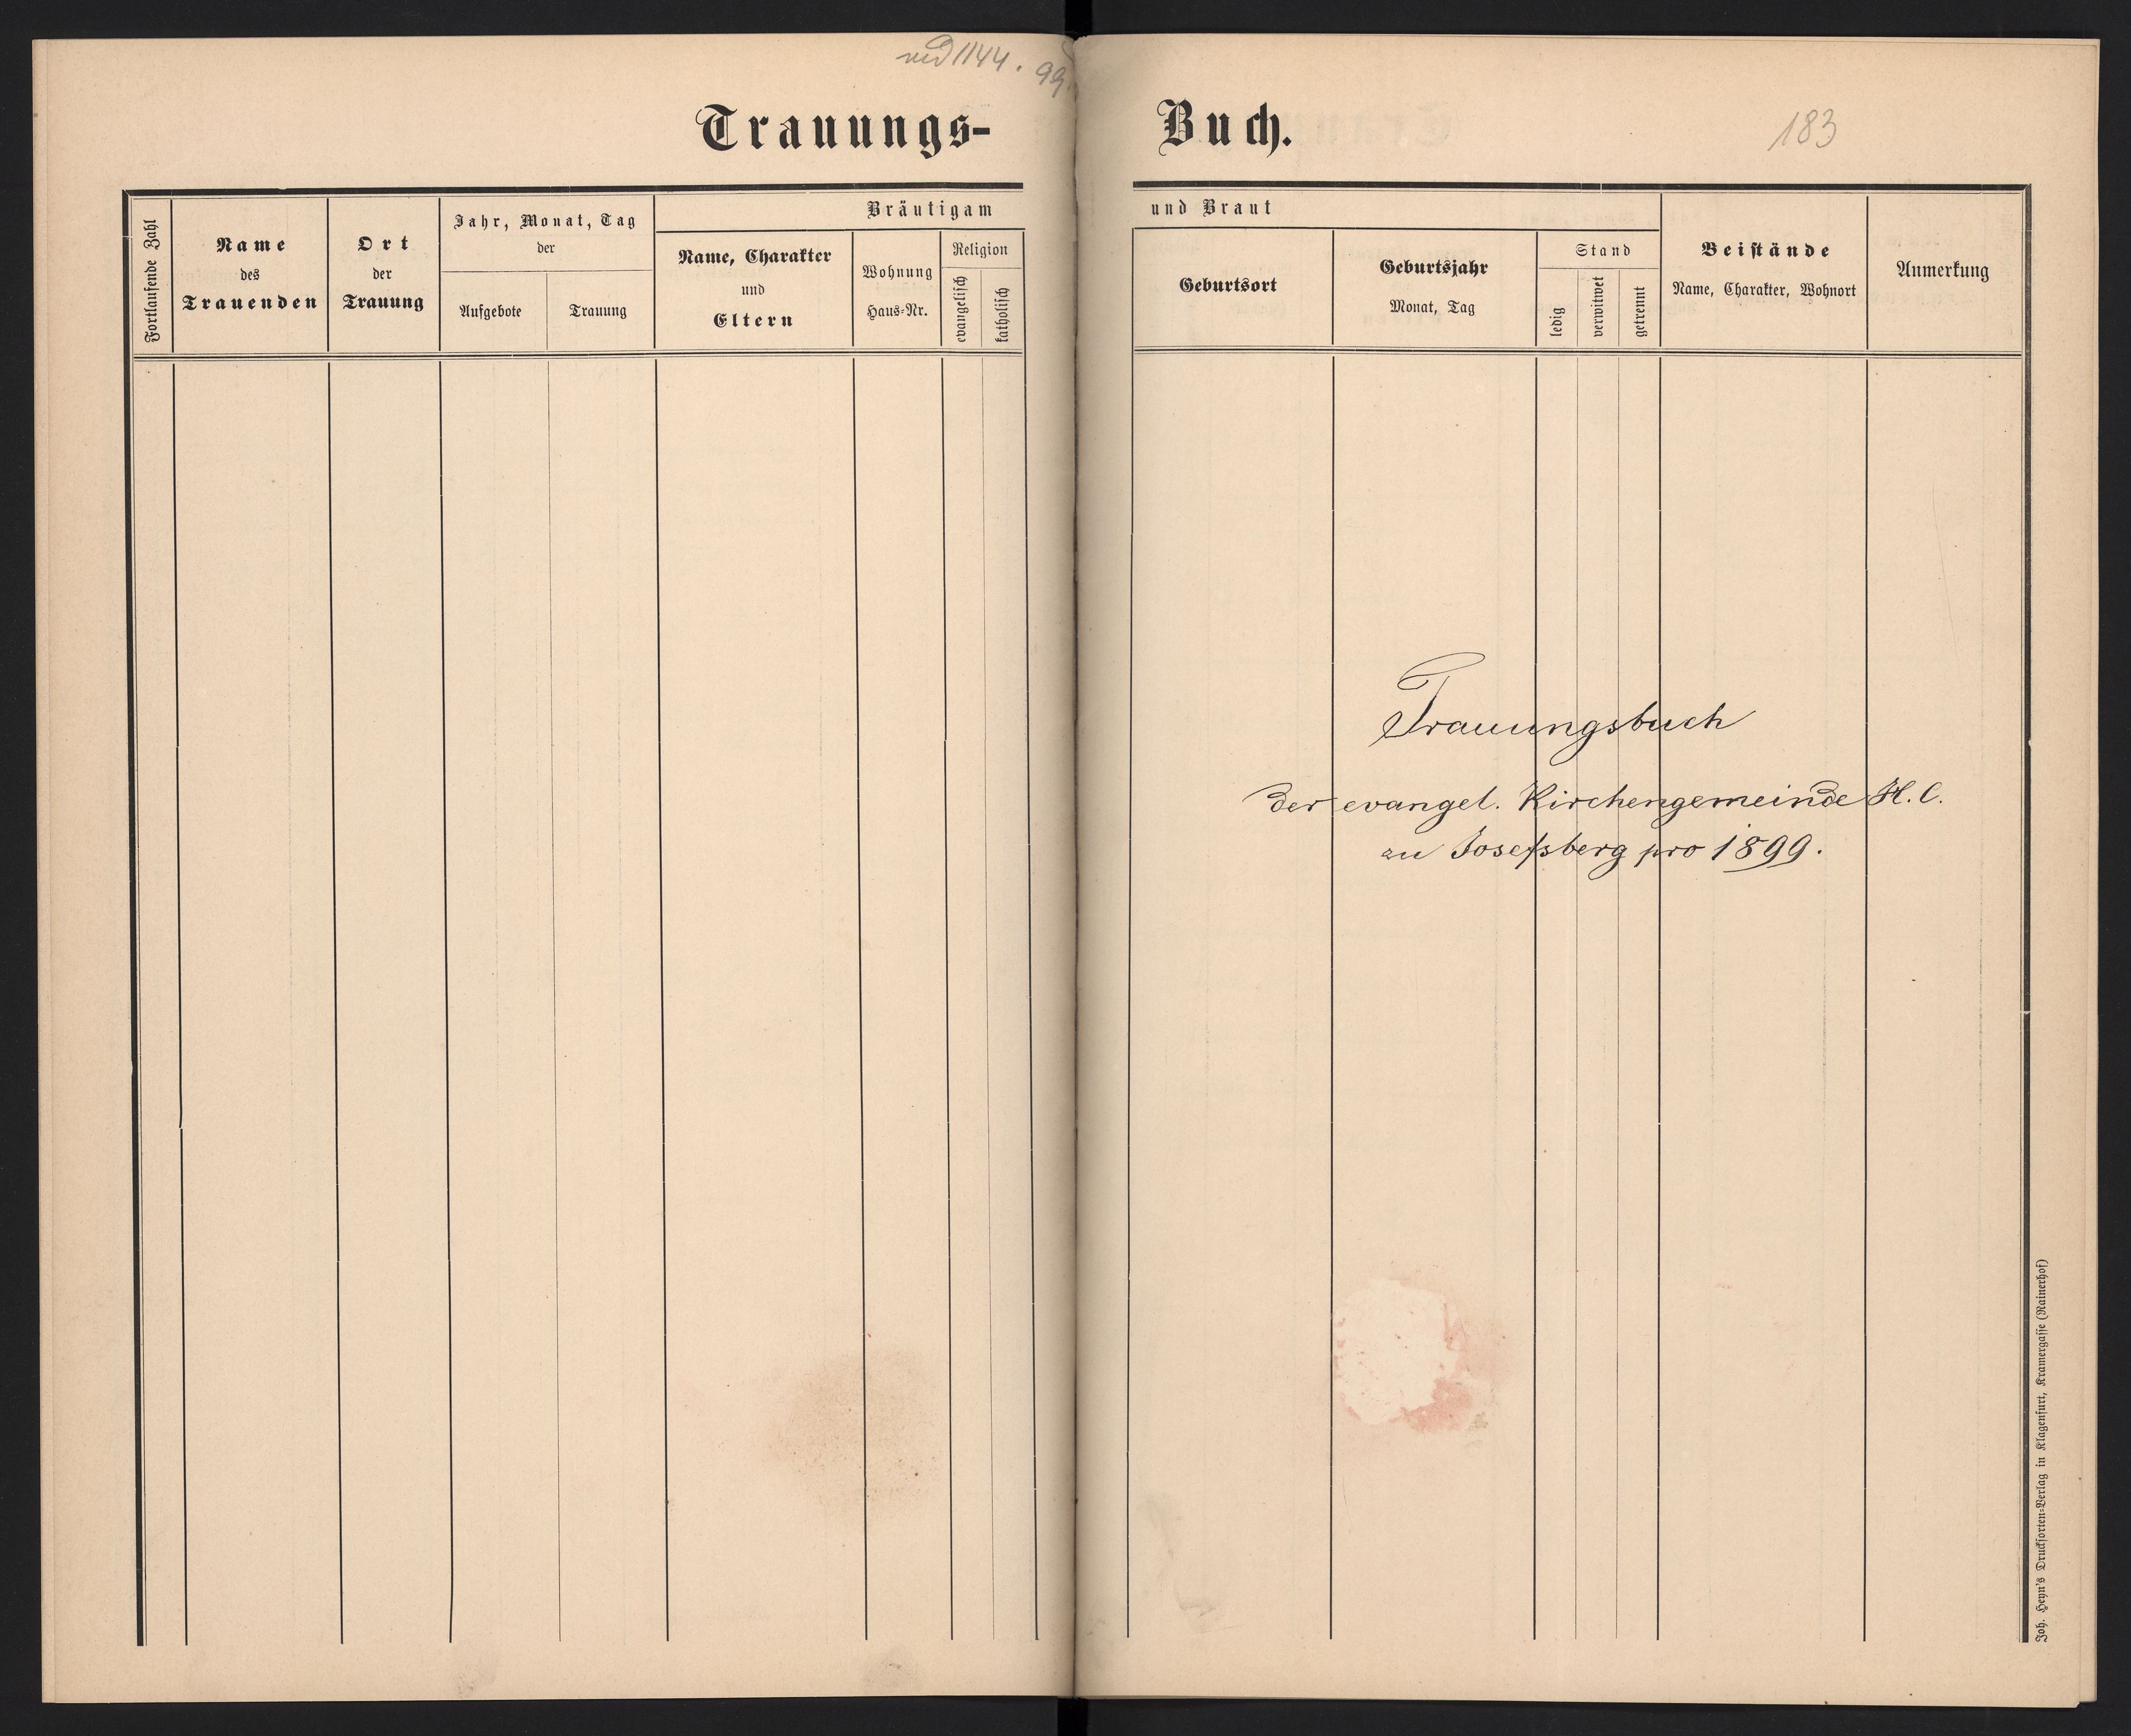 1144. 99.
Trauungs-Buch.
183
Fortlaufende Zahl
Name
des
Trauenden
Ort
der
Trauung
Jahr, Monat, Tag
der
Aufgebote
Trauung
Bräutigam
Name, Charakter
und
Eltern
Wohnung
Haus-Nr.
Religion
evangelisch
katholisch
und Braut
Geburtsort
Geburtsjahr
Monat, Tag
Stand
ledig
verwitwet
getrennt
Beistände
Name, Charakter, Wohnort
Anmerkung
Trauungsbuch
der evangel. Kirchengemeinde H.C.
zu Josefsberg pro 1899.
Joh. Heyn's Drucksorten-Verlag in Klagenfurt, Kramergasse (Rainerhof)